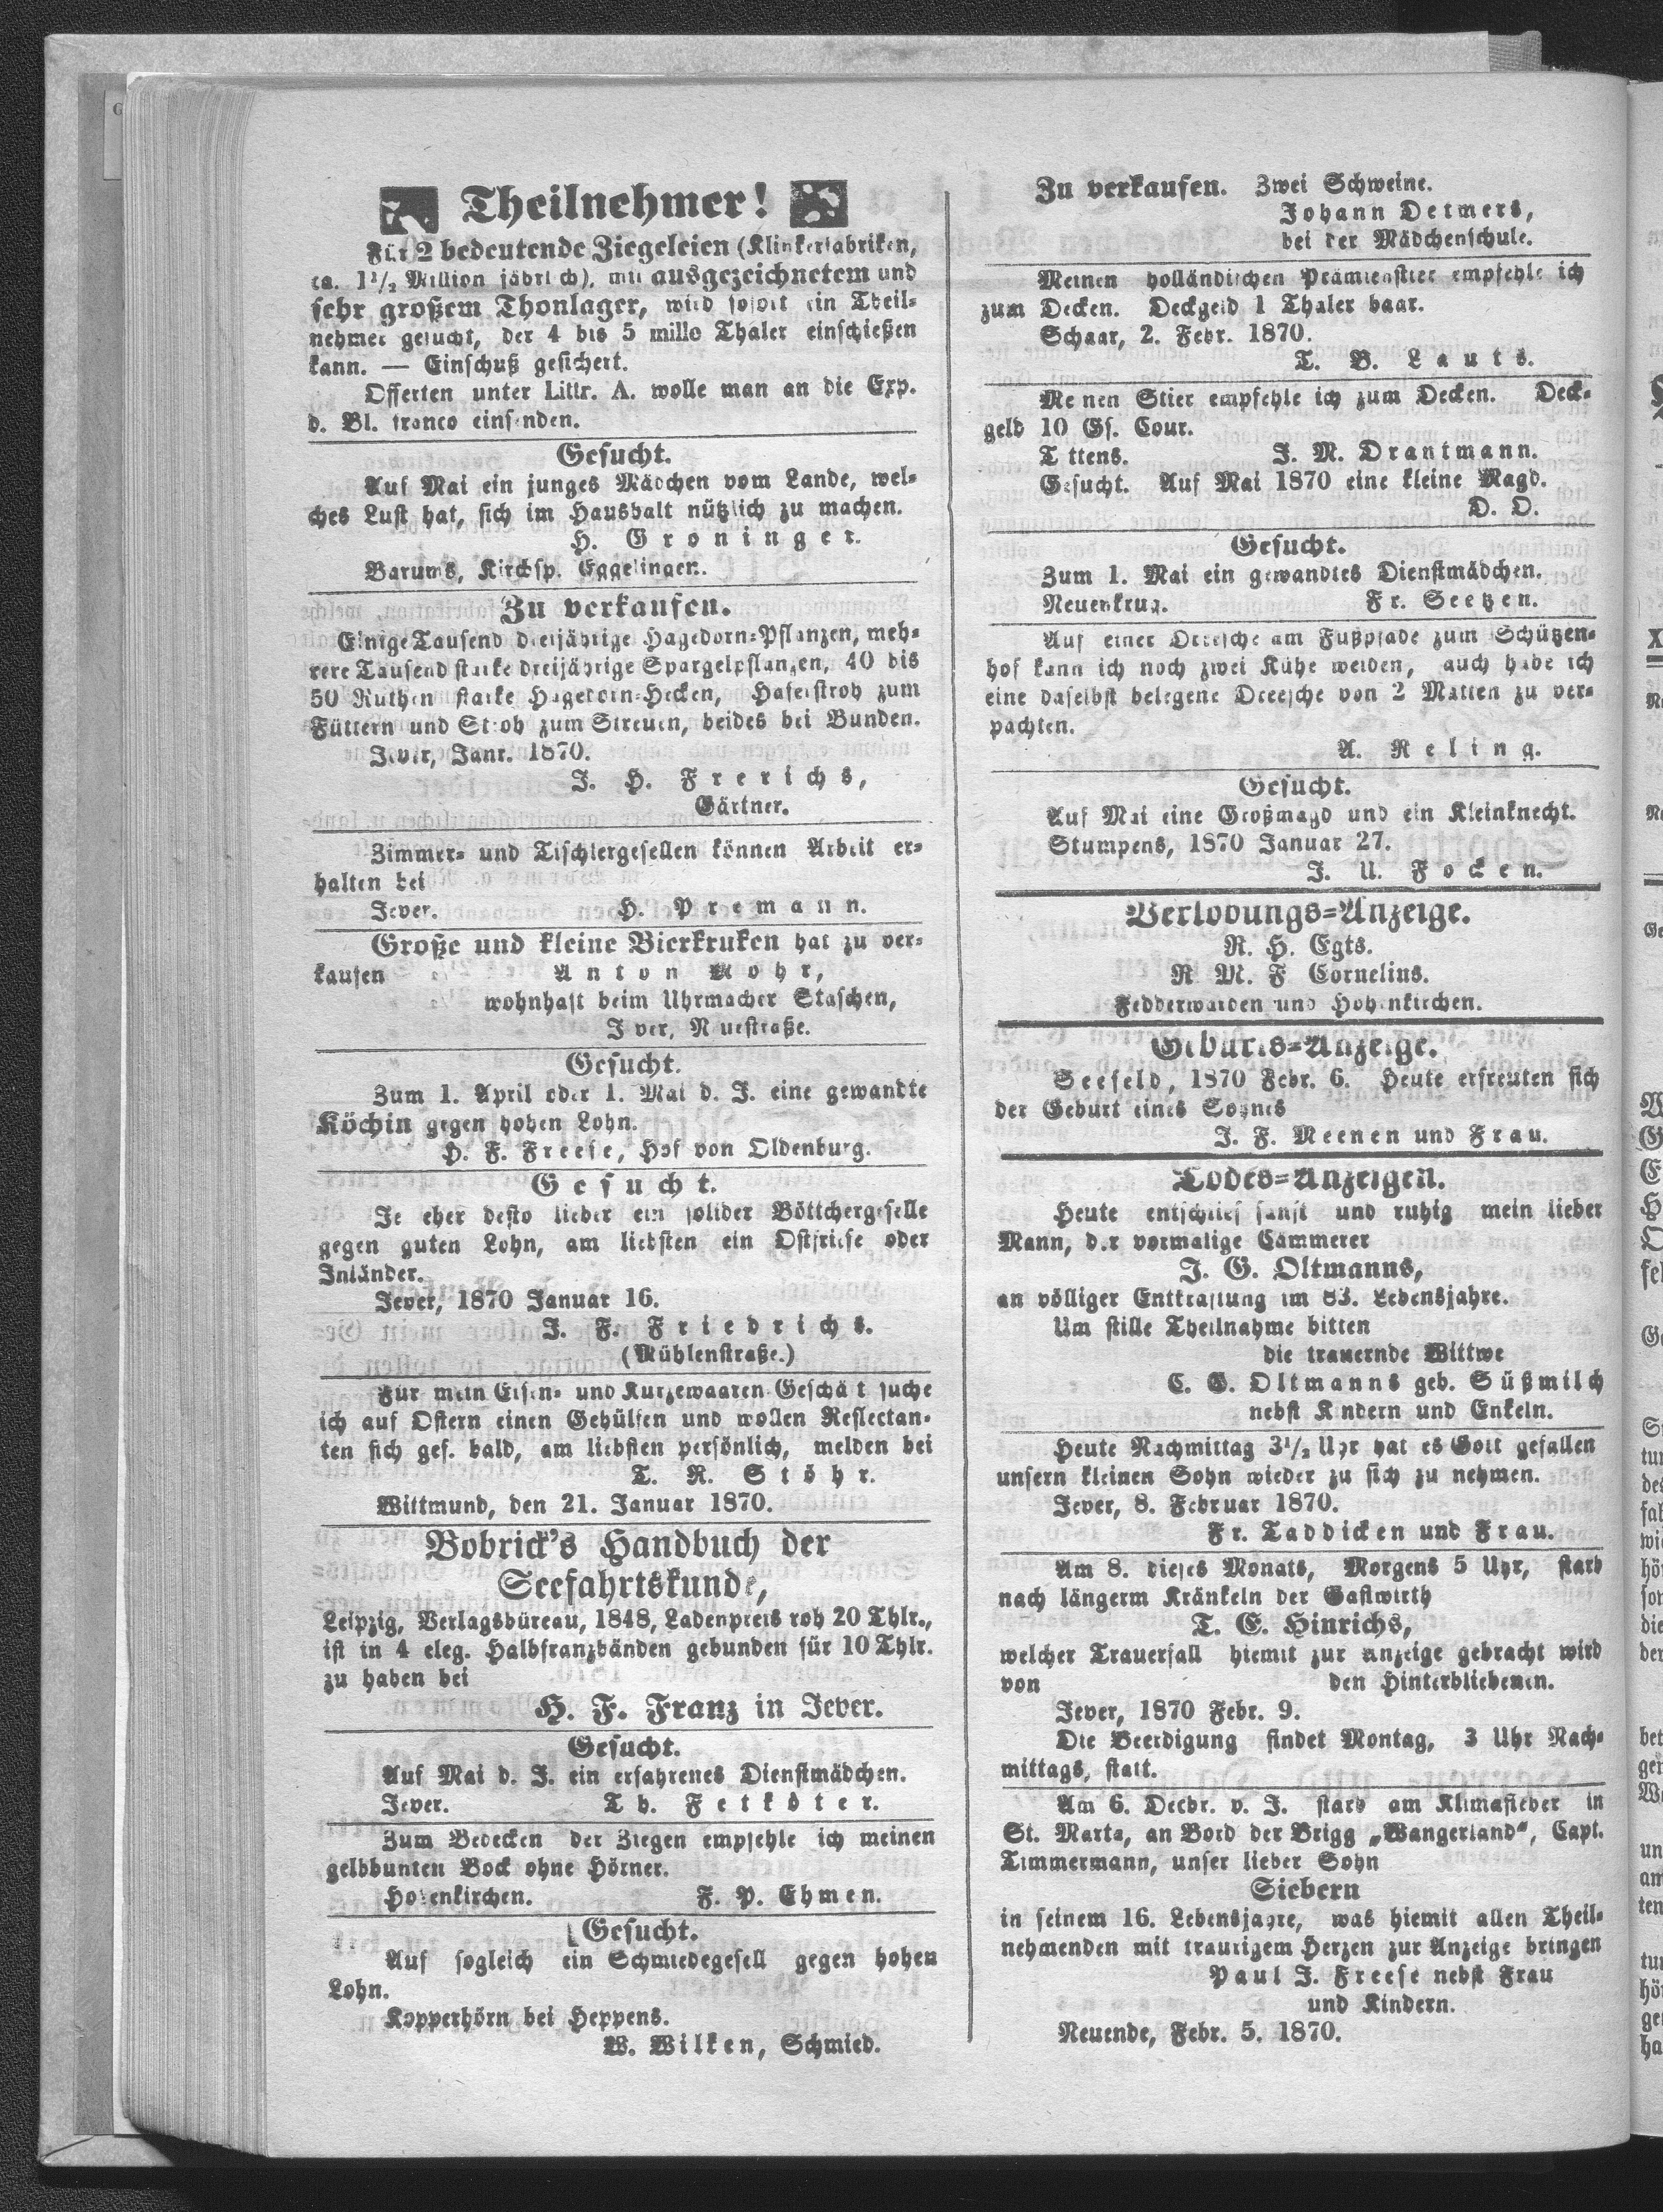 Theilnehmer!
Für 2 bedeutende Ziegeleien (Klinkerfabriken,
ca. 1½ Million jährlich), mit ausgezeichnetem und
sehr großem Thonlager, wird sofort ein Theil-
nehmer gesucht, der 4 bis 5 mille Thaler einschießen
kann. — Einschuß gesichert.
Offerten unter Littr. A. wolle man an die Exp.
d. Bl. franco einsenden.
Gesucht.
Auf Mai ein junges Mädchen vom Lande, wel-
ches Lust hat, sich im Haushalt nützlich zu machen.
H. Groninger.
Barums, Kirchsp. Eggelingen.
Zu verkaufen.
Einige Tausend dreijährige Hagedorn-Pflanzen, meh-
rere Tausend starke dreijährige Spargelpflanzen, 40 bis
50 Ruthen starke Hagedorn-Hecken, Haferstroh zum
Füttern und Stroh zum Streuen, beides bei Bunden.
Jever, Janr. 1870.
J. H. Frerichs,
Gärtner.
Zimmer- und Tischlergesellen können Arbeit er-
halten bei
Jever. H. Premann.
Große und kleine Bierkruken hat zu ver-
kaufen Anton Mohr,
wohnhaft beim Uhrmacher Staschen,
Jever, Neuestraße.
Gesucht.
Zum 1. April oder 1. Mai d. J. eine gewandte
Köchin gegen hohen Lohn.
H. F. Freese, Hof von Oldenburg.
Gesucht.
Je eher desto lieber ein solider Böttchergeselle
gegen guten Lohn, am liebsten ein Ostfriese oder
Inländer.
Jever, 1870 Januar 16.
J. F. Friedrichs.
(Mühlenstraße.)
Für mein Eisen- und Kurzewaaren-Geschäft suche
ich auf Ostern einen Gehülfen und wollen Reflectan-
ten sich gef. bald, am liebsten persönlich, melden bei
T. R. Stöhr.
Wittmund, den 21. Januar 1870.
Bobrick's Handbuch der
Seefahrtskunde,
Leipzig, Verlagsbüreau, 1848, Ladenpreis roh 20 Thlr.,
ist in 4 eleg. Halbfranzbänden gebunden für 10 Thlr.
zu haben bei
H. F. Franz in Jever.
Gesucht.
Auf Mai d. J. ein erfahrenes Dienstmädchen.
Jever. Th. Fetköter.
Zum Bedecken der Ziegen empfehle ich meinen
gelbbunten Bock ohne Hörner.
Hohenkirchen. F. P. Ehmen.
Gesucht.
Auf sogleich ein Schmiedegesell gegen hohen
Lohn.
Kopperhörn bei Heppens.
W. Wilken, Schmied.
Zu verkaufen. Zwei Schweine.
Johann Detmers,
bei der Mädchenschule.
Meinen holländischen Prämienstier empfehle ich
zum Decken. Deckgeld 1 Thaler baar.
Schaar, 2. Febr. 1870.
T. B. Lauts.
Meinen Stier empfehle ich zum Decken. Deck-
geld 10 Gs. Cour.
Tettens. J. M. Drantmann.
Gesucht. Auf Mai 1870 eine kleine Magd.
D. O.
Gesucht.
Zum 1. Mai ein gewandtes Dienstmädchen.
Neuenkrug. Fr. Seetzen.
Auf einer Dreesche am Fußpfade zum Schützen-
hof kann ich noch zwei Kühe weiden, auch habe ich
eine daselbst belegene Dreesche von 2 Matten zu ver-
pachten.
A. Reling.
Gesucht.
Auf Mai eine Großmagd und ein Kleinknecht.
Stumpens, 1870 Januar 27.
J. U. Focken.
Verlobungs-Anzeige.
R. H. Egts.
R. M. F Cornelius.
Fedderwarden und Hohenkirchen.
Geburts-Anzeige.
Seefeld, 1870 Febr. 6. Heute erfreuten sich
der Geburt eines Sohnes
J. F. Meenen und Frau.
Todes-Anzeigen.
Heute entschlief sanft und ruhig mein lieber
Mann, der vormalige Cämmerer
J. G. Oltmanns,
an völliger Entkräftung im 83. Lebensjahre.
Um stille Theilnahme bitten
die trauernde Wittwe
C. G. Oltmanns geb. Süßmilch
nebst Kindern und Enkeln.
Heute Nachmittag 3½ Uhr hat es Gott gefallen
unsern kleinen Sohn wieder zu sich zu nehmen.
Jever, 8. Februar 1870.
Fr. Taddicken und Frau.
Am 8. dieses Monats, Morgens 5 Uhr, starb
nach längerm Kränkeln der Gastwirth
T. E. Hinrichs,
welcher Trauerfall hiemit zur Anzeige gebracht wird
von den Hinterbliebenen.
Jever, 1870 Febr. 9.
Die Beerdigung findet Montag, 3 Uhr Nach-
mittags, statt.
Am 6. Decbr. v. J. starb am Klimafieber in
St. Marta, an Bord der Brigg „Wangerland“, Capt.
Timmermann, unser lieber Sohn
Siebern
in seinem 16. Lebensjahre, was hiemit allen Theil-
nehmenden mit traurigem Herzen zur Anzeige bringen
Paul J. Freese nebst Frau
und Kindern.
Neuende, Febr. 5. 1870.